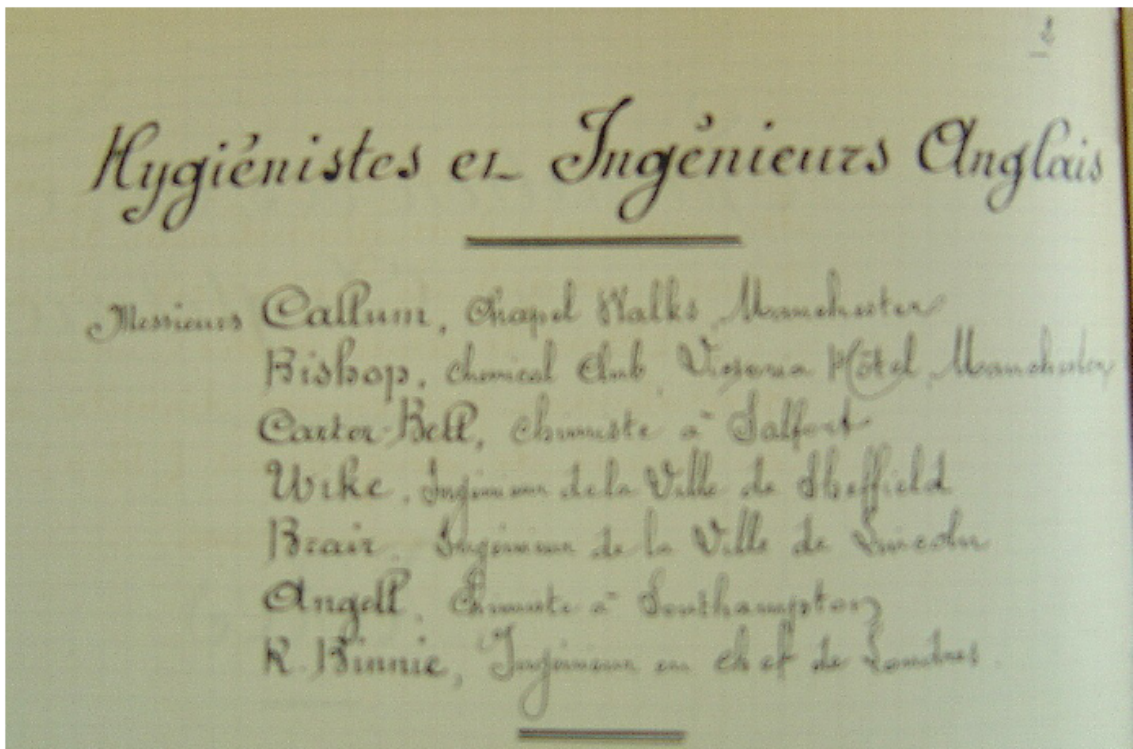 Hygiénistes et Ingénieurs Anglais
Messieurs Callum, Chapel Walks, Manchester
Bishop, chemical Club, Victoria Hôtel, Manchester
Carter-Bell, chimiste à Salfort
Wike, Ingénieur de la Ville de Sheffield
Brair, Ingénieur de la Ville de Lincoln
Angell, Chimiste à Southampton
R. Binnie, Ingénieur en chef de Londres.